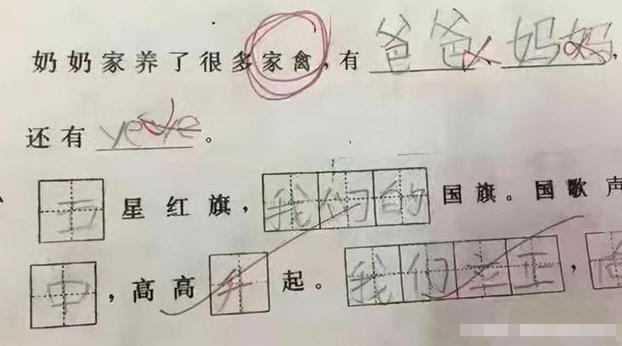 奶奶家养了很多家禽，有爸爸 妈妈，
还有yeye。
五星红旗，我们的国旗。国歌声
中，高高升起。我们立正，向